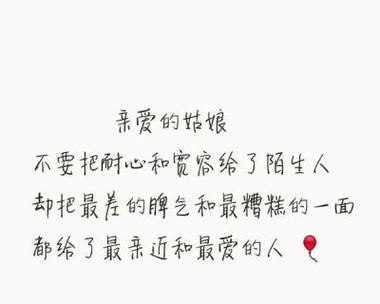 亲爱的姑娘
不要把耐心和宽容给了陌生人
却把最差的脾气和最糟糕的一面
都给了最亲近和最爱的人🎈